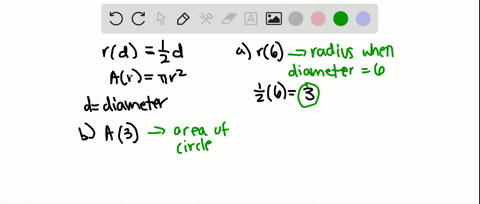 r(d) = 1/2 d
A(r) = πr²
d = diameter
a) r(6) → radius when
diameter = 6
1/2 (6) = 3
b) A(3) → area of
circle